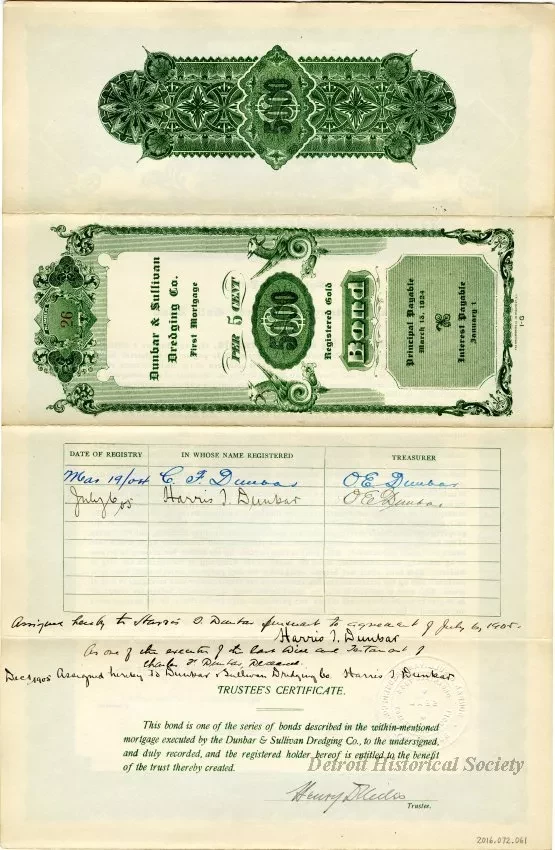 5000
26
Dunbar & Sullivan
Dredging Co.
First Mortgage
PER 5 CENT
5000
Registered Gold
Bond
Principal Payable
March 15, 1924
Interest Payable
January 1
DATE OF REGISTRY IN WHOSE NAME REGISTERED TREASURER
Mar 19/04 C. F. Dunbar O E Dunbar
July 6/05 Harris T. Dunbar O E Dunbar
Assigned hereby to Harris T. Dunbar pursuant to agreement of July 6, 1905.
Harris T. Dunbar
As one of the executors of the Last Will and Testament of
Charles F. Dunbar, Deceased.
Dec 1905 Assigned hereby to Dunbar & Sullivan Dredging Co. Harris T. Dunbar
TRUSTEE'S CERTIFICATE.
This bond is one of the series of bonds described in the within-mentioned
mortgage executed by the Dunbar & Sullivan Dredging Co., to the undersigned,
and duly recorded, and the registered holder hereof is entitled to the benefit
of the trust thereby created.
Detroit Historical Society
Henry
Trustee.
2016.072.061